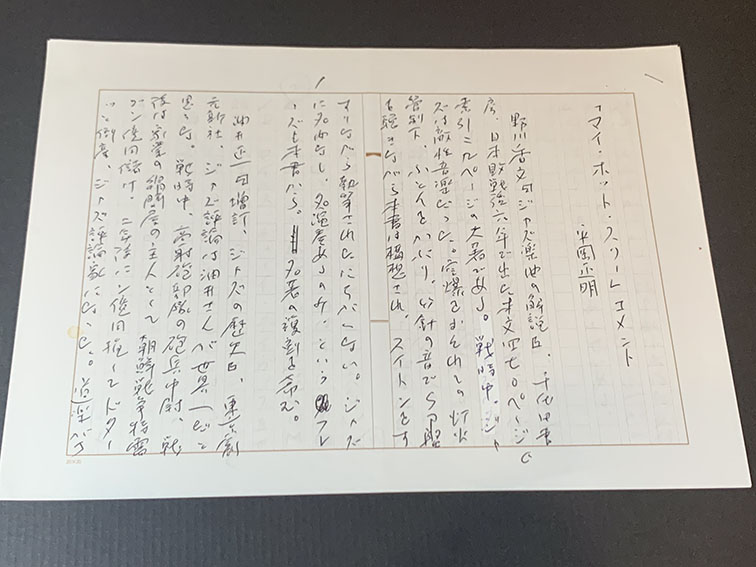 「マイ・ホット・スリー」コメント
平岡正明
野川香文『ジャズ楽曲の解説』、千代田書
房、日本敗戦後六年で出た本文四七〇ページ、
索引二〇ページの大著である。戦時中、ジャ
ズは敵性音楽だった。空爆をおそれての灯火
管制下、ふとんをかぶり、竹針の音でSP盤
を聴きながら本書は構想され、スイトンをす
すりながら執筆されたにちがいない。ジャズ
に名曲なし、名演奏あるのみ、というフレ
ーズも本書から。名著の復刻を念ず。
油井正一『増訂、ジャズの歴史』、東京創
元新社。ジャズ評論は油井さんが世界一だと
思った。戦時中、高射砲部隊の砲兵中尉、戦
後は家業の問屋の主人として朝鮮戦争特需
億円儲け、二年後に億円損してドター
ッと倒産、ジャズ評論家になった。道楽が